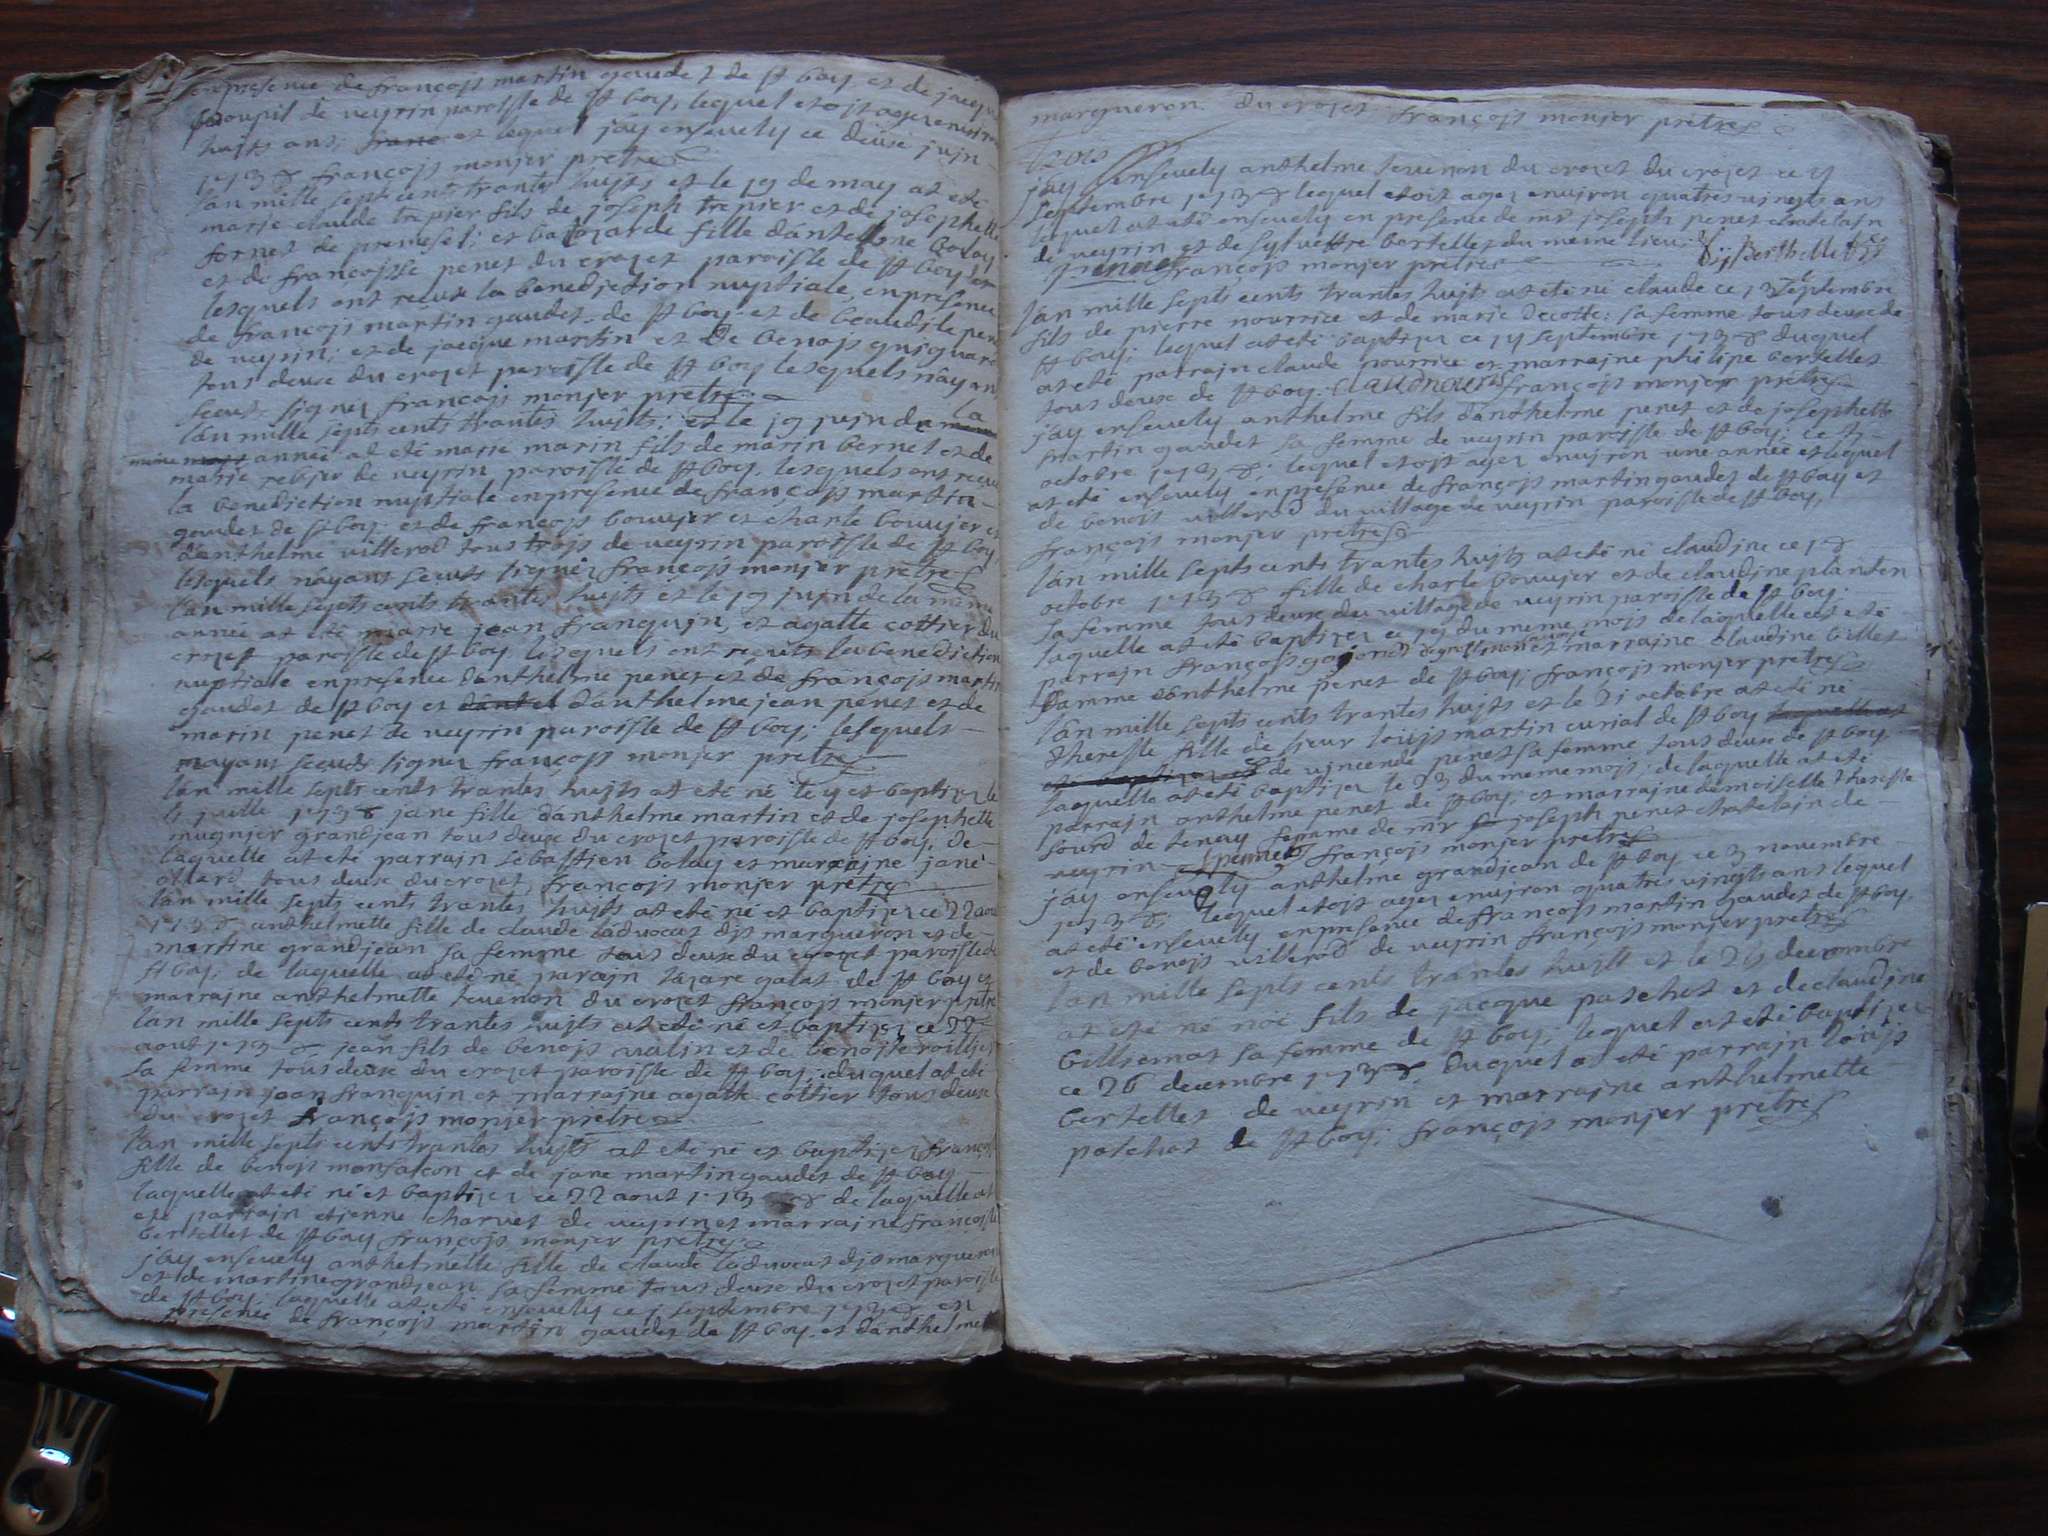 en presence de françojs martin gaudet de st boy et de jacque
goupil de veyrin paroisse de st boy, lequel etojt agez environ
hujts ans; et lequel jáy ensevely ce deuse juin
1738 françojs monjer prêtre
lán mille sept cents trante hujts et le 19 de may at eté
marie claude trepier fils de joseph trepier et de josephette
fornet de premesel; et balzarde fille dántelme bolay
et de françoisse penet du crozet paroisse de st boy
lesquels ont reçuse la benedjction nuptiale en presence
de françojs martin gaudet de st boy et de beaudile penet
de veyrin; et de jacque martin et de benojs
tous deuse du crozet paroisse de st boy lesquels náyant
sceus signez françojs monjer prêtre
lán mille septs cents trantes hujts; et le 19 juin de la
même année at eté marie marin fils de marin bernet et de
marie rebjer de veyrin paroisse de st boy, lesquels ont reçu
la benediction nuptiale en presence de françojs martin
gaudet de st boy et de françojs bouvjer et charle bouvjer et
dánthelme villerod tous trojs de veyrin paroisse de st boy
lesquels náyant sceuts signéz françojs monjer prêtre
lán mille septs cents trantes hujts et le 19 juin de la même
année at eté marie jean franquin, et agatte cottier du
crozet paroisse de st boy lesquels ont reçuts la benediction
nuptiale en presence dánthelme penet et de françojs martin
gaudet de st boy et dánthelme jean penet et de
marin penet de veyrin paroisse de st boy; lesquels
nayant sceuds signez françojs monjer prêtre
lán mille septs cents trantes hujts at eté né le y et baptizez le
juille 1738 jane fille dánthelme martin et de josephette
mugnjer grandjean tous deuse du crozet paroisse de st boy, de
laquelle at eté parrain sebastjen bolay et marrajne jane
ollard tous deuse du crozet françojs monjer prêtre
lán mille septs cents trantes hujts at eté né et baptizez ce 22 aout
1738 anthelmette fille de claude ladvocat djs margueron et de
martine grandjean sa femme tous deuse du crozet paroisse de
st boy; de laquelle at eté né parajn lazare galat de st boy et
marrajne anthelmette tevenon du crozet françojs monjer prêtre
lán mille septs cents trantes hujts at eté né et baptizez ce 22
aout 1738 jean fils de benojs vulin et de benojte
sa femme tous deuse du crozet paroisse de st boy; duquel at eté
parrajn jean franquin et marrajne agath cottier tous deuse
du crozet françojs monjer prêtre
lán mille septs cents trantes hujts at eté né et baptizez
fille de benojs monfalcon et de jane martin gaudet de st boy
laquelle at eté né et baptizez ce 22 aout 1738 de laquelle at
eté parrajn etjenne charvet de veyrin et marrajne françojsse
bertellet de st boy françojs monjer prêtre
jáy ensevely anthelmette fille de claude ladvocat djs margueron
et de martine grandjean sa femme tous deuse du crozet paroisse
de st boy; laquelle at eté ensevely ce j septembre 1738 en
presence de françojs martin gaudet de st boy et dánthelme
margueron du crozet françojs monjer prêtre
jáy ensevely anthelme tevenon du crozet du crozet ce
septembre 1738 lequel etoit agez environ quatres vingts ans
lequel at eté ensevely en presence de mr joseph penet chatelajn
de veyrin et de sylvestre bertellet du meme lieu; Berthellet
penet françojs monjer prêtre
lán mille septs cents trantes hujts at eté né claude ce 13 septembre
fils de pierre nourrice et de marie decotte; sa femme tous deuse de
st boy; lequel at eté baptizez ce septembre 1738 duquel
at eté parrajn claude nourrice et marrajne philipe bertellet
tous deuse de st boy; françojs monjer prêtre
jáy ensevely anthelme fils dánthelme penet et de josephette
martin gaudet sa femme de veyrin paroisse de st boy; ce
octobre 1738; lequel etojt agez envjron une année et lequel
at eté ensevely en presence de françojs martin gaudet de st boy et
de benojs villerod du village de veyrin paroisse de st boy,
françojs monjer prêtre
lán mille septs cents trantes hujts at eté né claudjne ce 18
octobre 1738 fille de charle bouvjer et de claudine planten
sa femme tous deuse du village de veyrin paroisse de st boy;
laquelle at eté baptizez ce 19 du meme mojs de laquelle at eté
parrajn françojs et marrajne claudine billet
famme dánthelme penet de st boy; françojs monjer prêtre
lán mille septs cents trantes hujts et le 21 octobre at eté né
theresse fille de sieur loujs martin curial de st boy
et de vincende penet sa femme tous deuse de st boy
laquelle at eté baptizez le 23 du meme mojs; de laquelle at eté
parrajn anthelme penet de st boy et marrajne demoiselle theresse
sourd de tenay femme de mr joseph penet chatelain de
veyrin penet françojs monjer prêtre
jáy ensevely anthelme grandjean de st boy ce 3 novembre
1738; lequel etojt agez envjron quatres vingts ans lequel
at eté ensevely en presence de françojs martin gaudet de st boy,
et de benojs villerod de veyrin françojs monjer prêtre
lán mille septs cents trantes hujtt et le 25 decembre
at eté né noé fils de jacque patchot et de claudjne
billiemat sa femme de st boy; lequel at eté baptizez
ce 26 decembre 1738 duquel at eté parrajn loüjs
bertellet de veyrin et marrajne anthelmette
patchot de st boy; françojs monjer prêtre